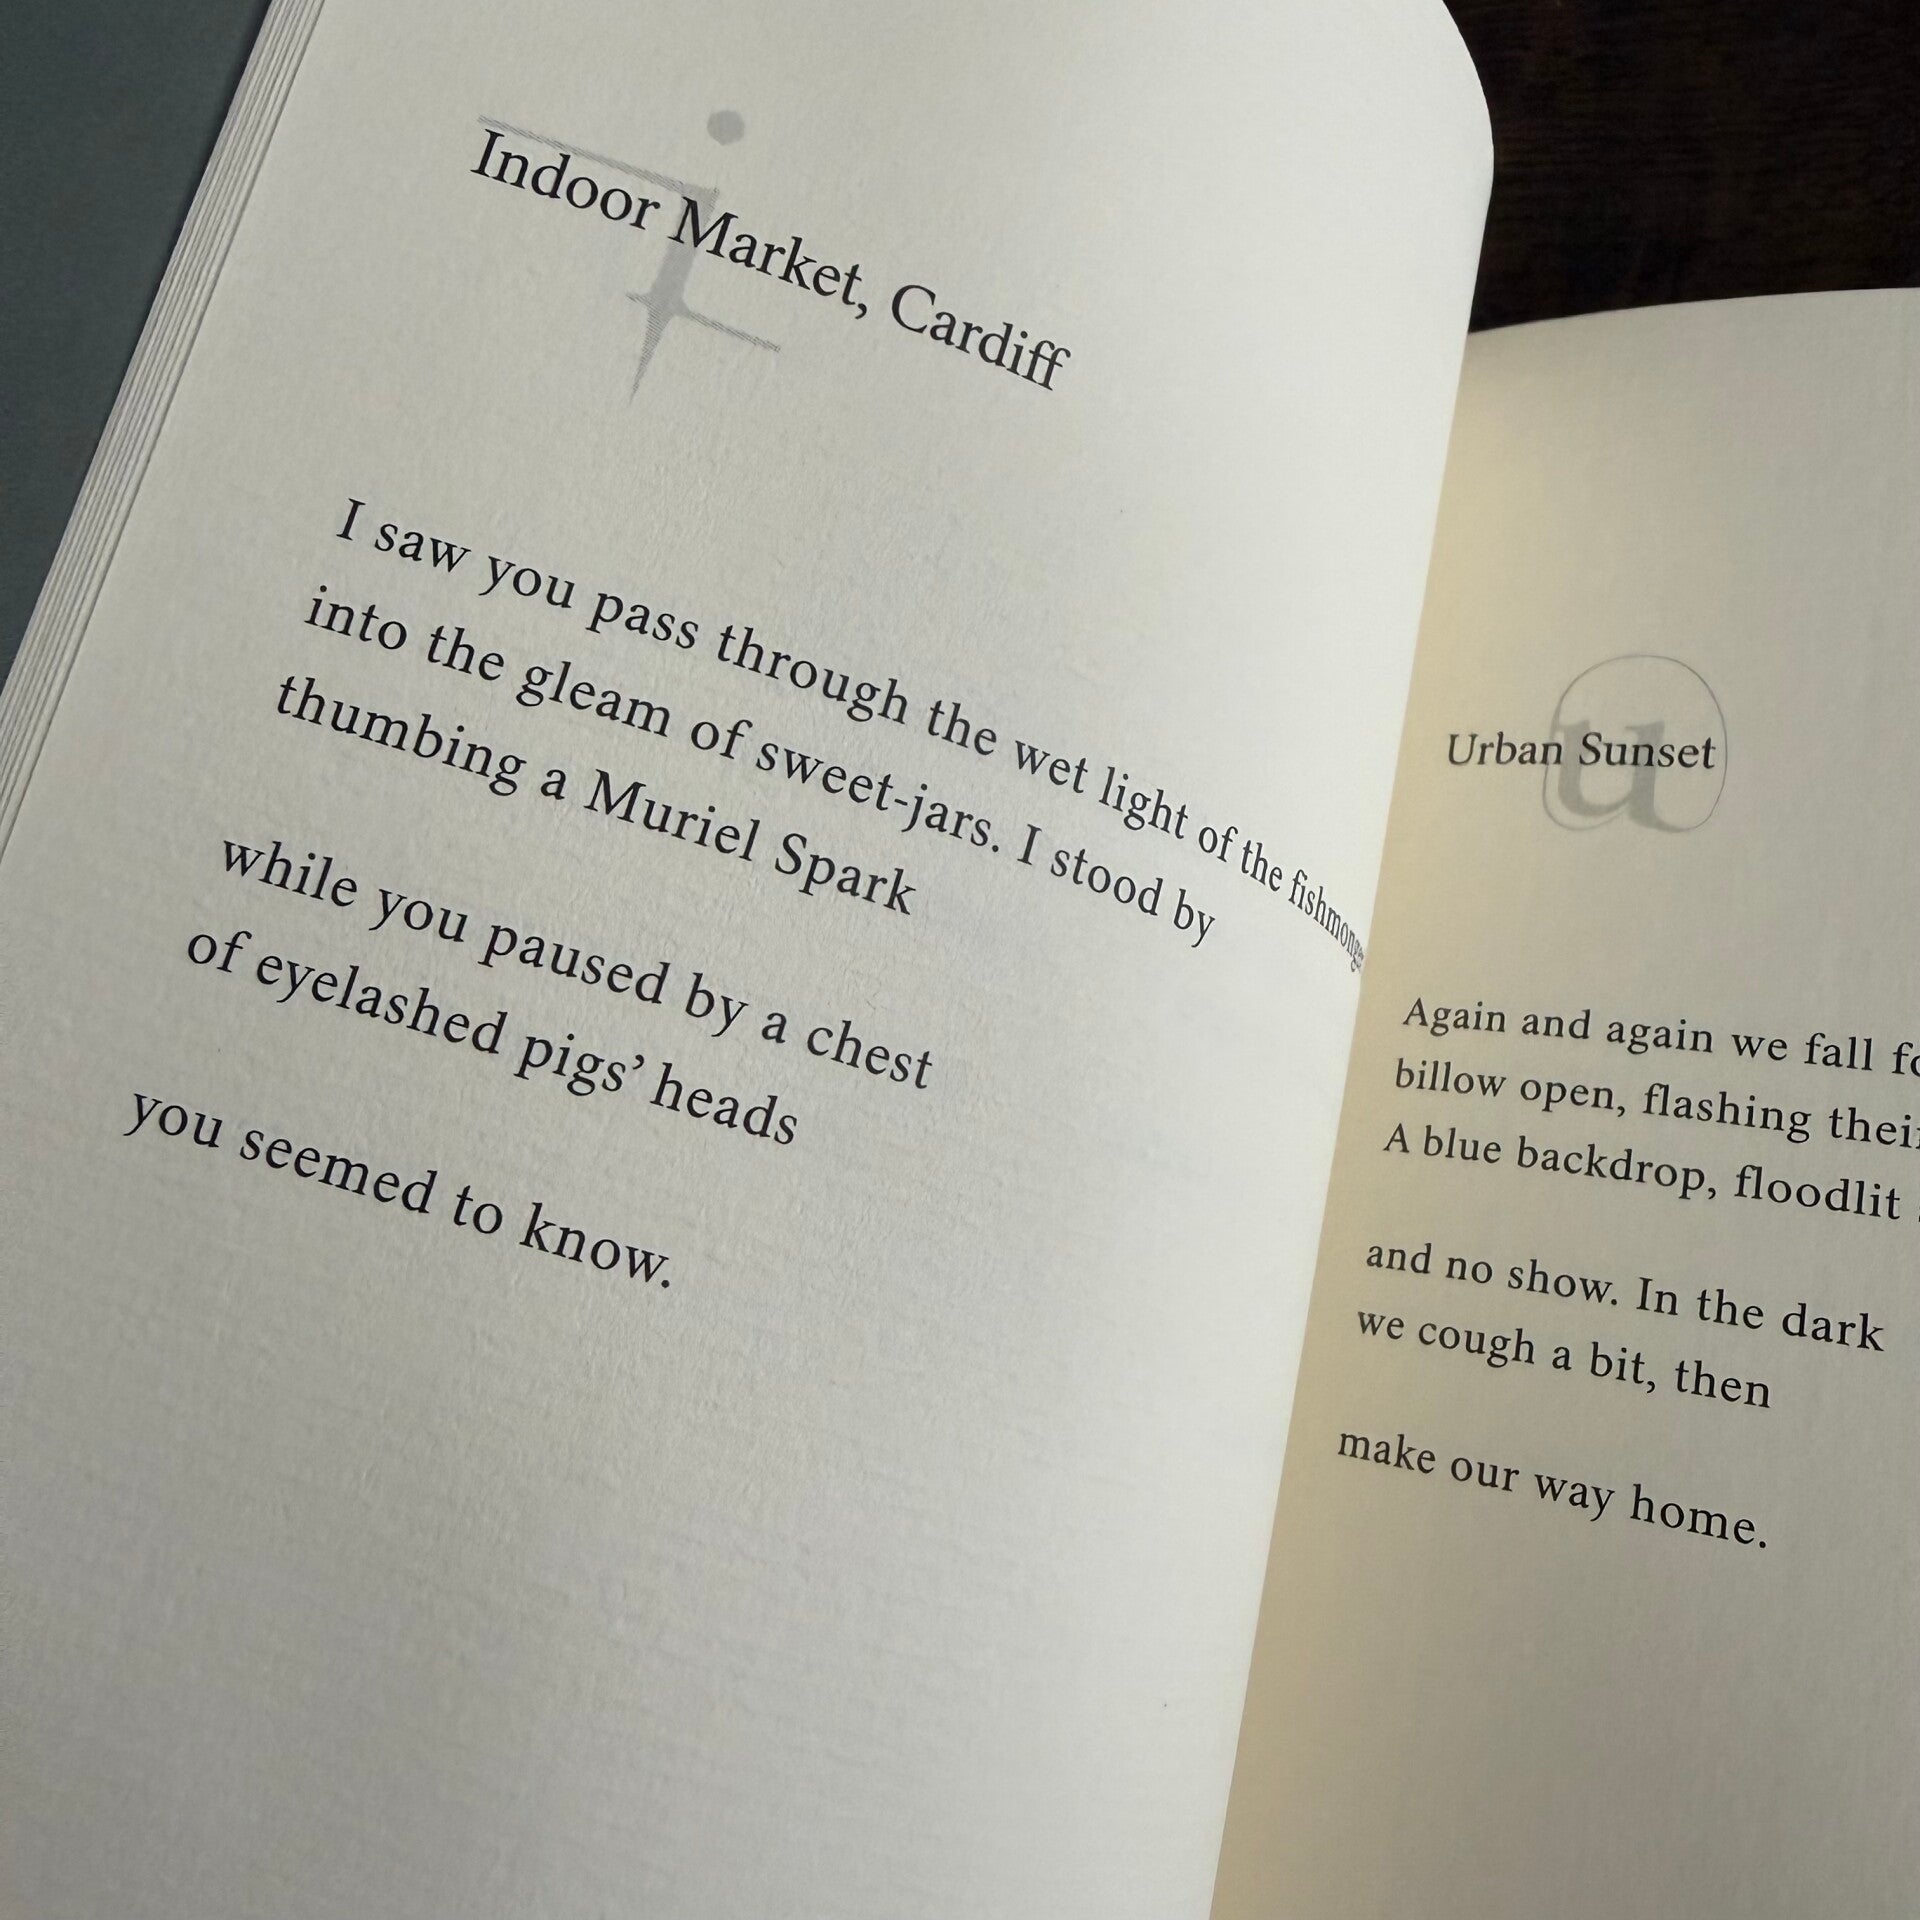 Indoor Market, Cardiff
I saw you pass through the wet light of the
into the gleam of sweet-jars. I stood by
thumbing a Muriel Spark
while you paused by a chest
of eyelashed pigs’ heads
you seemed to know.
u
Urban Sunset
Again and again we fall
billow open, flashing
A blue backdrop, floodlit
and no show. In the dark
we cough a bit, then
make our way home.